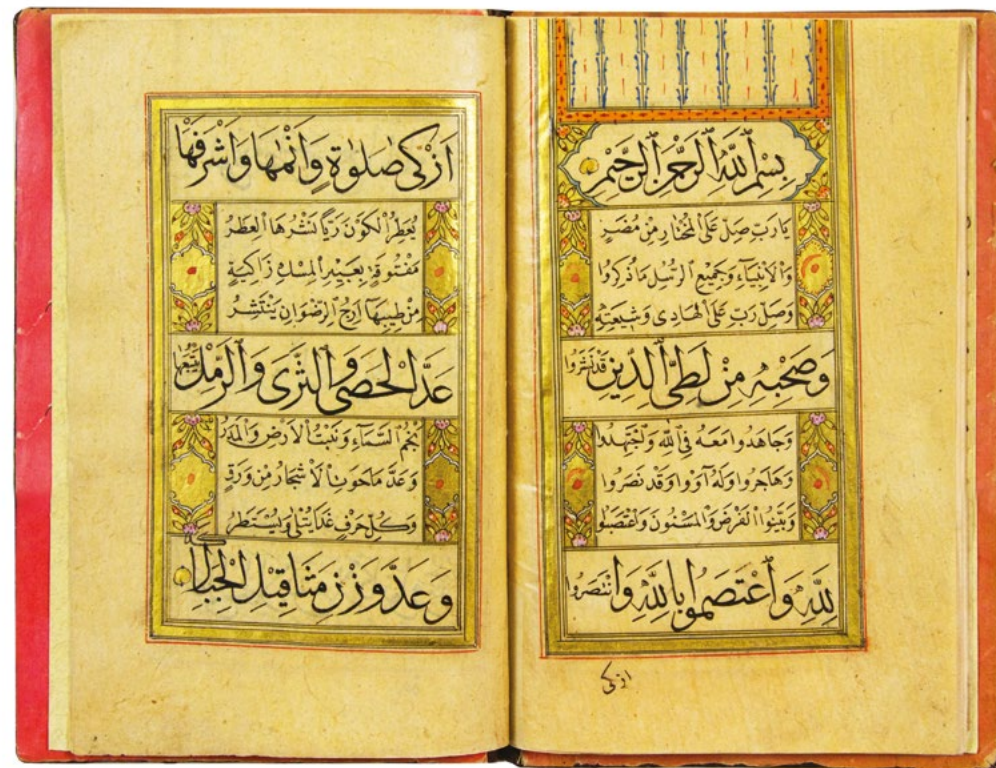 بِسْمِ اللّٰهِ الرَّحْمٰنِ الرَّحِيْمِ
يَا رَبِّ صَلِّ عَلَى الْمُخْتَارِ مِنْ مُضَرٍ
وَالْاَنْبِيَآءِ وَجَمِيْعِ الرُّسْلِ مَا ذُكِرُوا
وَصَلِّ رَبِّ عَلَى الْهَادِى وَشِيْعَتِهِ
وَصَحْبِهِ مِنْ لِطَىِّ الدِّيْنِ قَدْ نَشَرُوا
وَجَاهَدُوا مَعَهُ فِى اللّٰهِ وَاجْتَهَدُوا
وَهَاجَرُوا وَلَهُ آوَوْا وَقَدْ نَصَرُوا
وَبَيَّنُوا الْفَرْضَ وَالْمَسْنُوْنَ وَاعْتَصَبُوا
لِلّٰهِ وَاعْتَصَمُوا بِاللّٰهِ وَانْتَصَرُوا
ازكى
اَزْكٰى صَلٰوةٍ وَاَنْمٰهَا وَاَشْرَفَهَا
يُعَطِّرُ الْكَوْنَ رَيَّا نَشْرِهَا الْعَطِرُ
مَفْتُوْقَةً بِعَبِيْرِ الْمِسْكِ زَاكِيَةً
مِنْ طِيْبِهَا اَرَجُ الرِّضْوَانِ يَنْتَشِرُ
عَدَّ الْحَصٰى وَالثَّرٰى وَالرَّمْلِ يَتْبَعُهَا
نَجْمُ السَّمَآءِ وَنَبْتُ الْاَرْضِ وَالْمَدَرُ
وَعَدَّ مَا حَوَتِ الْاَشْجَارُ مِنْ وَرَقٍ
وَكُلِّ حَرْفٍ غَدَا يُتْلٰى وَيُسْتَطَرُ
وَعَدَّ وَزْنِ مَثَاقِيْلِ الْجِبَالِ